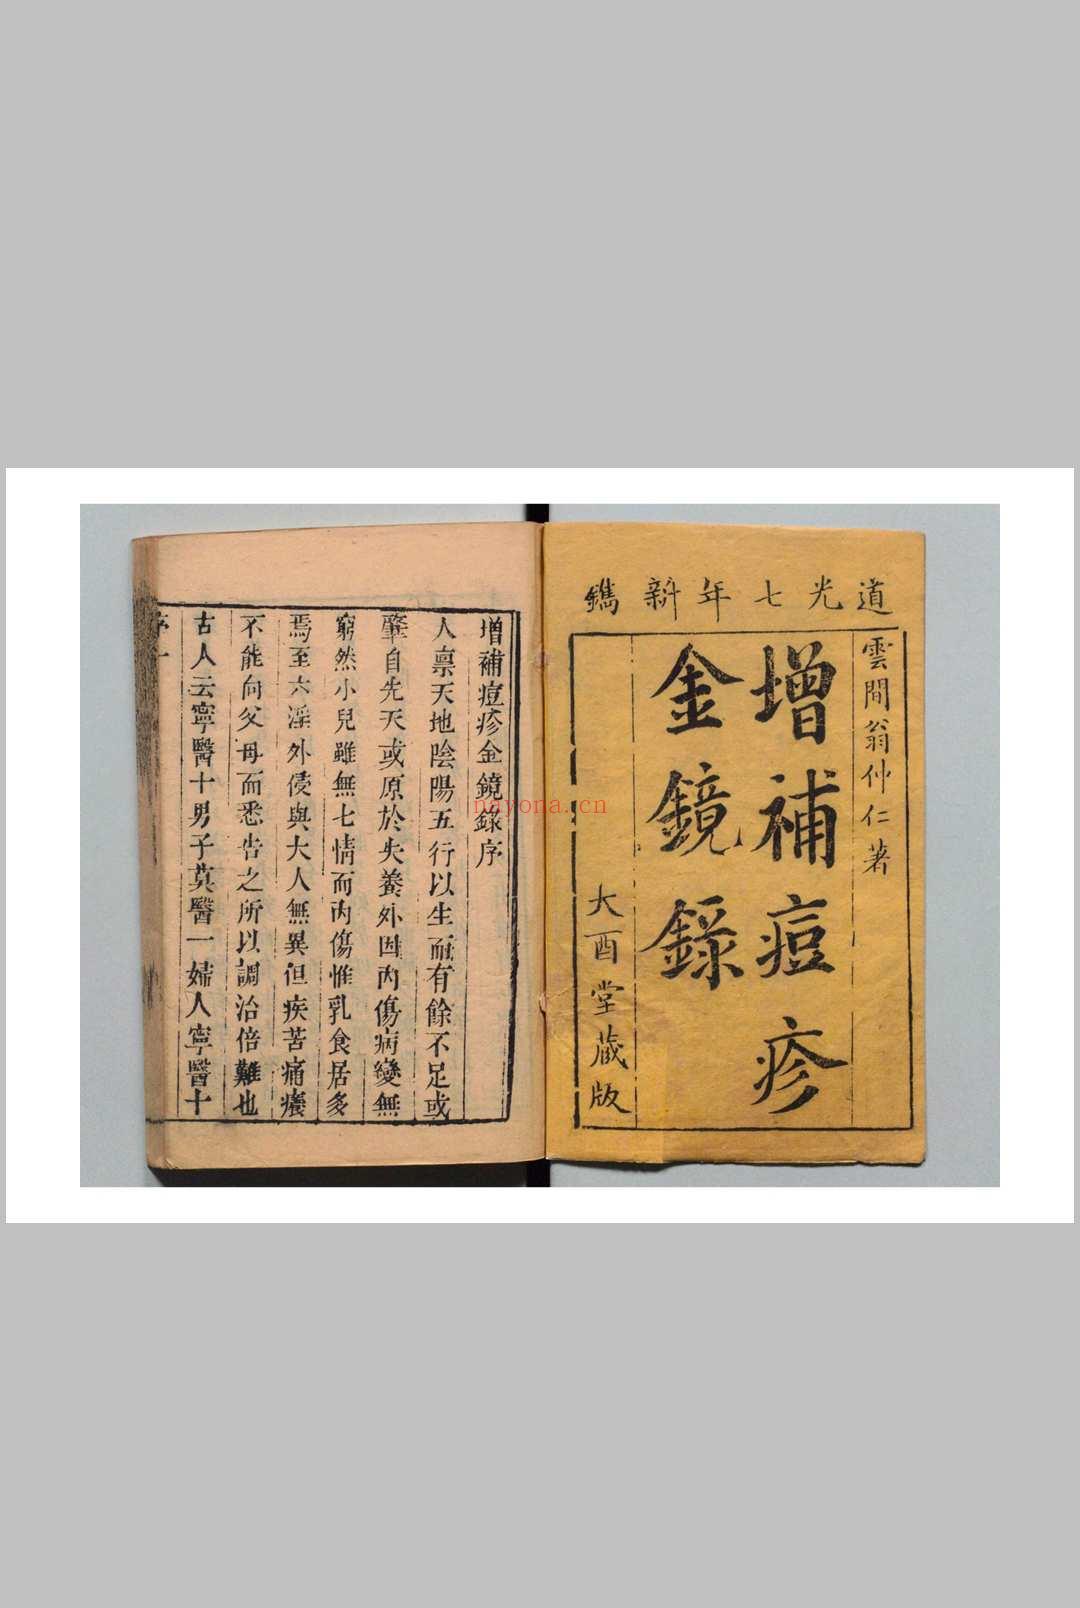 道光七年新鐫
雲間翁仲仁著
增補痘疹
金鏡錄
大酉堂藏版
增補痘疹金鏡錄序
人禀天地陰陽五行以生而有餘不足或
肇自先天或原於失養外因内傷病變無
窮然小兒雖無七情而内傷惟乳食居多
焉至六淫外侵與大人無異但疾苦痛癢
不能向父母而悉告之所以調治倍難也
古人云寧醫十男子莫醫一婦人寧醫十
序一
nayona.cn